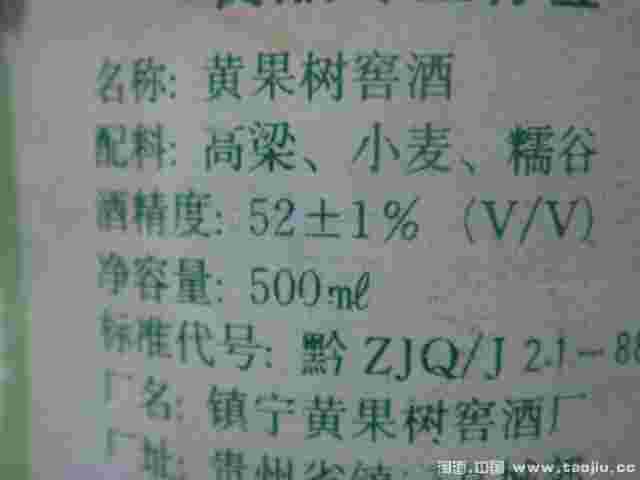 名称: 黄果树窖酒
配料: 高粱、小麦、糯谷
酒精度: 52±1% (V/V)
净容量: 500ml
标准代号: 黔 ZJQ/J 2.1-88
厂名: 镇宁黄果树窖酒厂
厂址: 贵州省镇
淘酒.中国 www.taojiu.cc